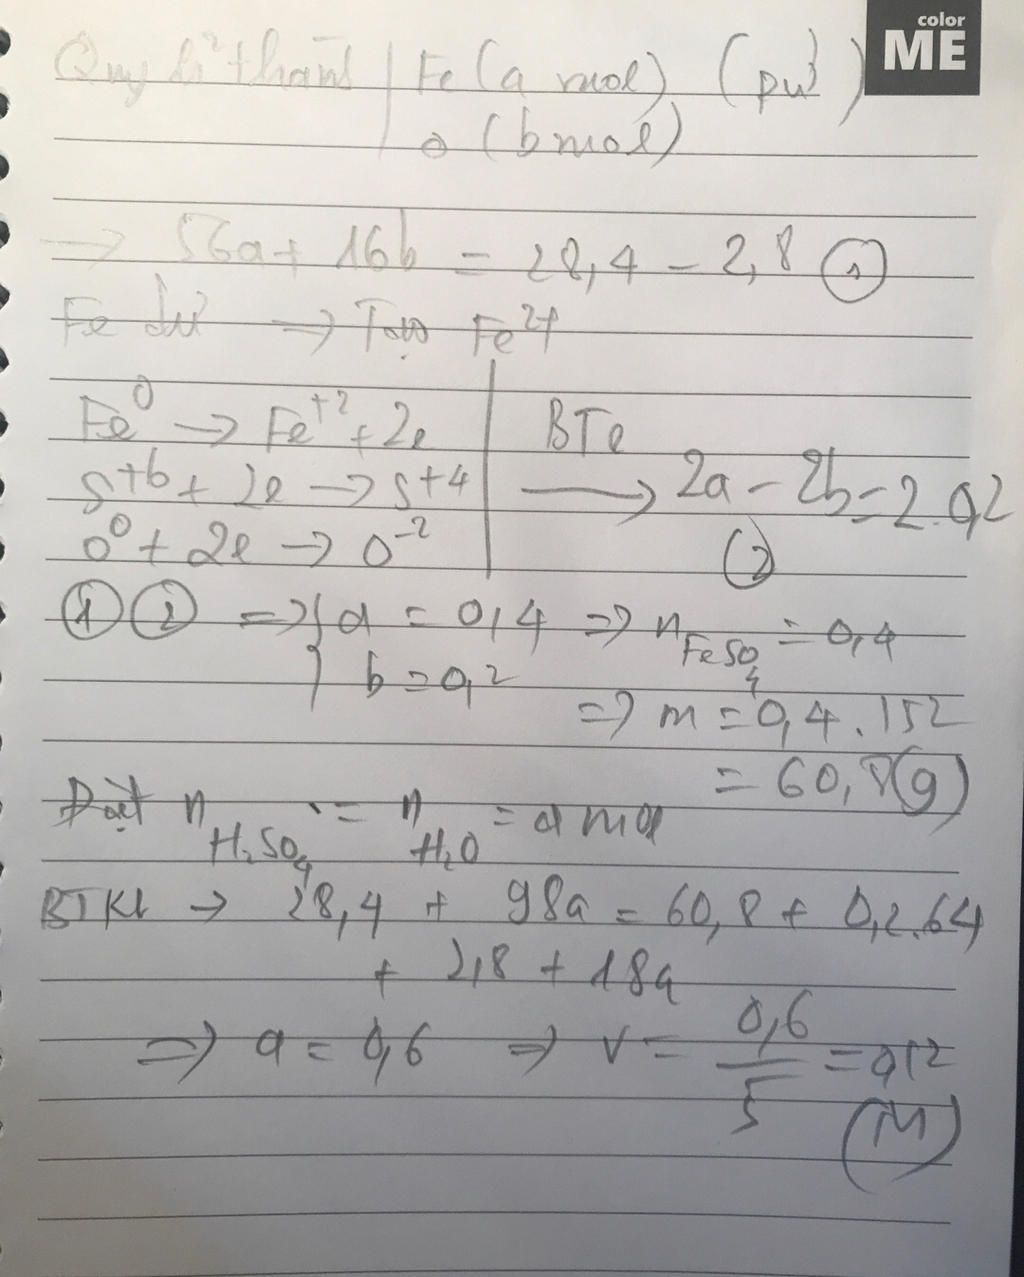 color
ME
Quy hỗn thành | Fe (a mol) (pư)
O (b mol)
=> 56a + 16b = 28,4 - 2,8 (1)
Fe dư => Tạo Fe²⁺
Fe⁰ -> Fe⁺² + 2e
S⁺⁶ + 2e -> S⁺⁴
O⁰ + 2e -> O⁻²
BTe
-> 2a - 2b = 2.0,2
(2)
(1)(2) => { a = 0,4 => n FeSO₄ = 0,4
b = 0,2
=> m = 0,4.152
= 60,8(g)
Đặt n H₂SO₄ = n H₂O = a mol
BTKL -> 28,4 + 98a = 60,8 + 0,2.64
+ 2,8 + 18a
=> a = 0,6 => V = 0,6/5 = 0,12
(M)